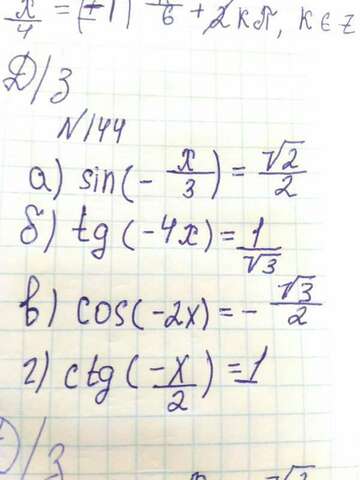 x/4 = (-1) π/6 + 2кπ, к ∈ Z
Д/З
N144
а) sin(- x/3) = √2/2
б) tg(-4x) = 1/√3
в) cos(-2x) = - √3/2
г) ctg(-x/2) = 1
/З